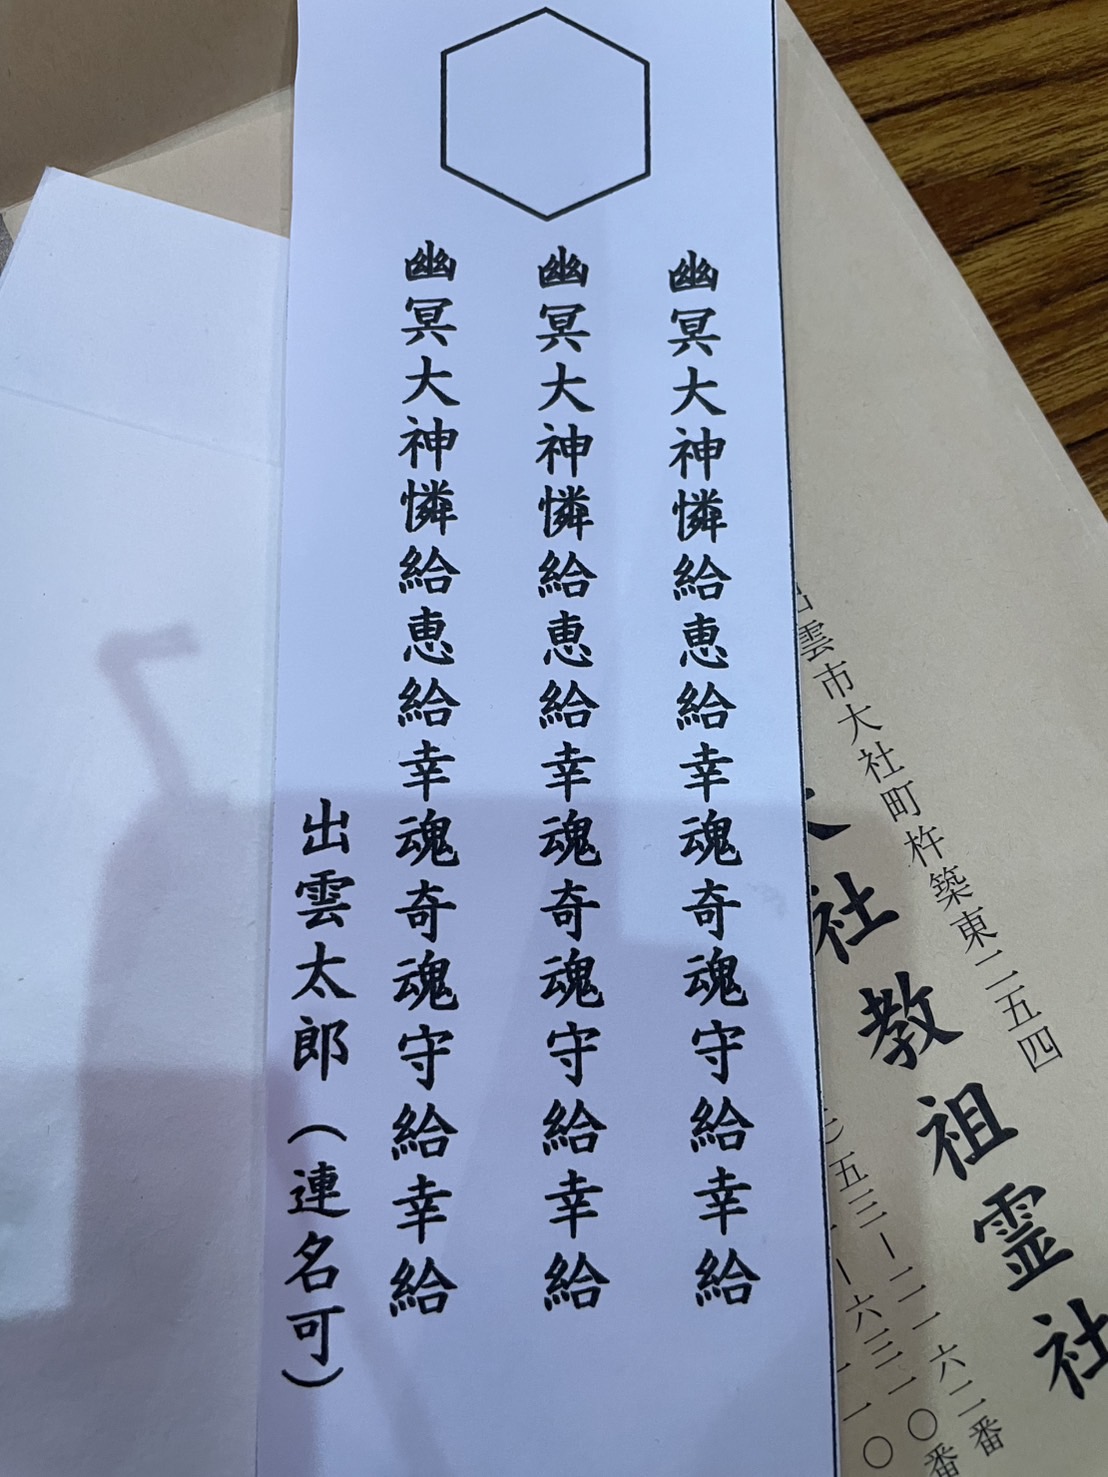 幽冥大神憐給恵給幸魂奇魂守給幸給
幽冥大神憐給恵給幸魂奇魂守給幸給
幽冥大神憐給恵給幸魂奇魂守給幸給
出雲太郎（連名可）
出雲市大社町杵築東二五四
社教祖霊社
五三ー二一六二番
ー六三一〇番
一一〇